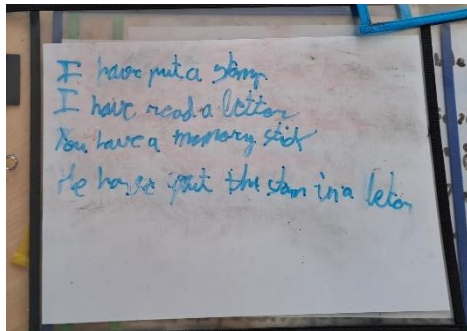 I have put a stamp
I have read a letter
You have a memory stick
He has put the stam in a leter